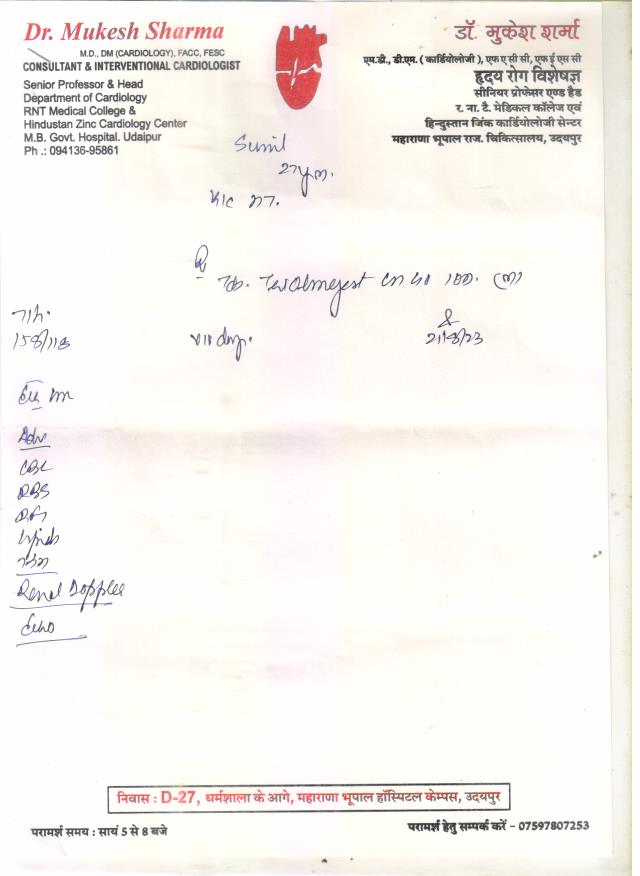 Dr. Mukesh Sharma
M.D., DM (CARDIOLOGY), FACC, FESC
CONSULTANT & INTERVENTIONAL CARDIOLOGIST
Senior Professor & Head
Department of Cardiology
RNT Medical College &
Hindustan Zinc Cardiology Center
M.B. Govt. Hospital. Udaipur
Ph .: 094136-95861
डॉ. मुकेश शर्मा
एम.डी., डी.एम. ( कार्डियोलॉजी ), एफ ए सी सी, एफ ई एस सी
हृदय रोग विशेषज्ञ
सीनियर प्रोफेसर एण्ड हैड
र. ना. टै. मेडिकल कॉलेज एवं
हिन्दुस्तान जिंक कार्डियोलोजी सेन्टर
महाराणा भूपाल राज. चिकित्सालय, उदयपुर
Sunil
27y/m.
K/c
Tab.
158/118
21/8/23
Adv
CBC
RBS
RFT
Lipid
Renal Doppler
Echo
निवास : D-27, धर्मशाला के आगे, महाराणा भूपाल हॉस्पिटल केम्पस, उदयपुर
परामर्श समय : सायं 5 से 8 बजे
परामर्श हेतु सम्पर्क करें - 07597807253